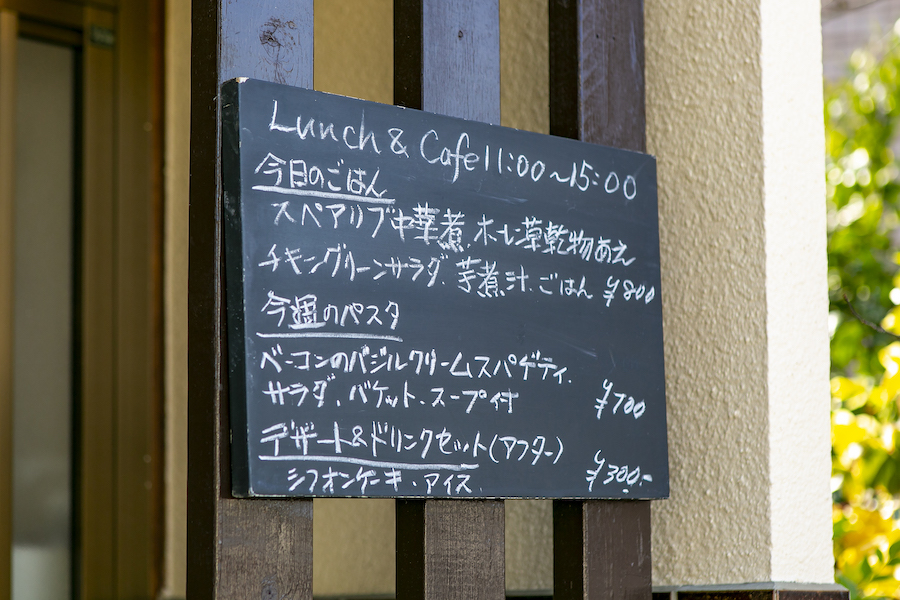 Lunch & Cafe 11:00~15:00
今日のごはん
スペアリブ中華煮、木の草乾物あえ
チキングリーンサラダ、芋煮汁、ごはん ¥800
今週のパスタ
ベーコンのバジルクリームスパゲティ、
サラダ、バケット、スープ付 ¥700
デザート&ドリンクセット(アフター)
シフォンケーキ・アイス ¥300.-